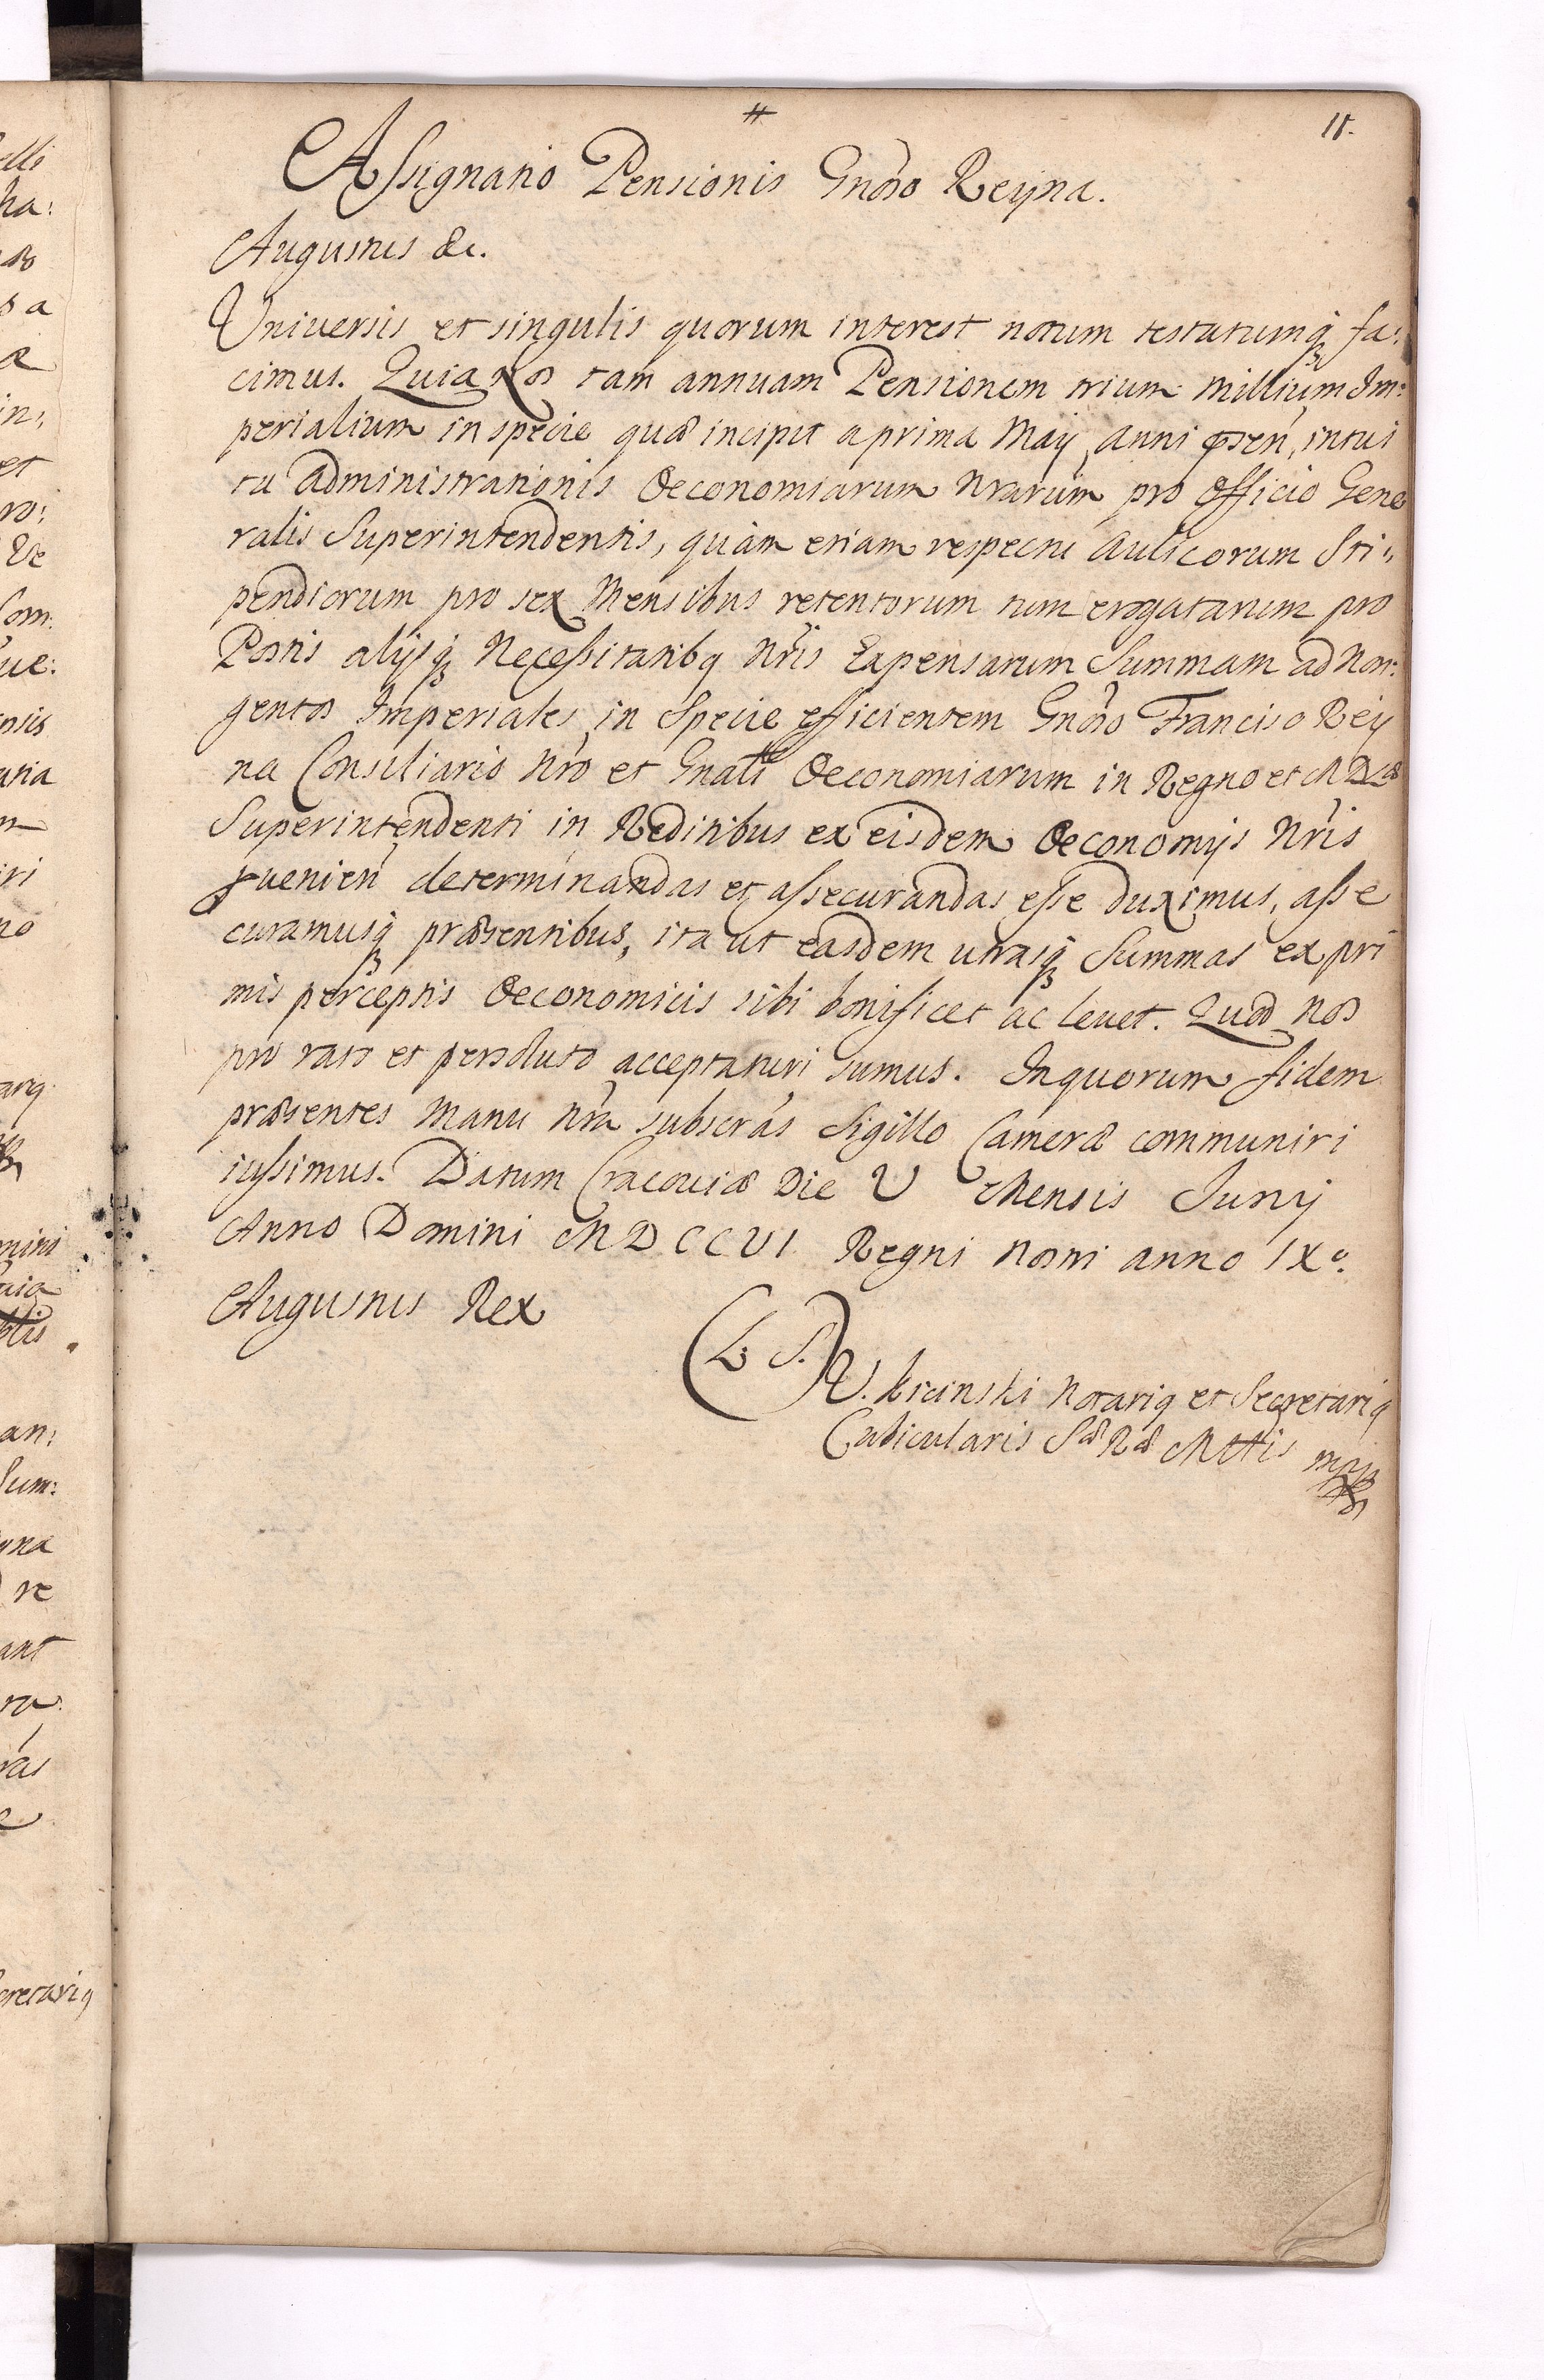 #
11.
Assignatio Pensionis Gnoso Reyna.
Augustus &c.
Universis et singulis quorum interest notum testatumq fa:
cimus. Quia Nos tam annuam Pensionem trium Millium Im:
perialium in specie quæ incipit a prima Maij anni præsen, intui
tu administrationis Oeconomiarum Nrarum pro Officio Gene
ralis Superintendentis, quàm etiam respectu Aulicorum Sti,,
pendiorum pro sex Mensibus retentorum tum erogatarum pro
Postis alijsq Necessitatibq Nris Expensarum Summam ad Non:
gentos Imperiales in Specie efficientem Gnoso Francisco Rey
na Consiliario Nro et Gnali Oeconomiarum in Regno et M D L
Superintendenti in Reditibus ex eisdem Oeconomijs Nris
puenien determinandas et assecurandas esse duximus, asse
curamusq præsentibus, ita ut easdem utrasq Summas ex pri
mis perceptis Oeconomicis sibi bonificet ac levet. Quod nos
pro rato et persoluto acceptaturi sumus. In quorum fidem
præsentes Manu Nra subscras Sigillo Cameræ communiri
iussimus. Datum Cracoviæ Die V Mensis Junij
Anno Domini MDCCVI Regni Nostri anno IXo.
Augustus Rex
(L. S.)
Notariq et Secretariq
Cubicularis Sæ Ræ Mttis mpp